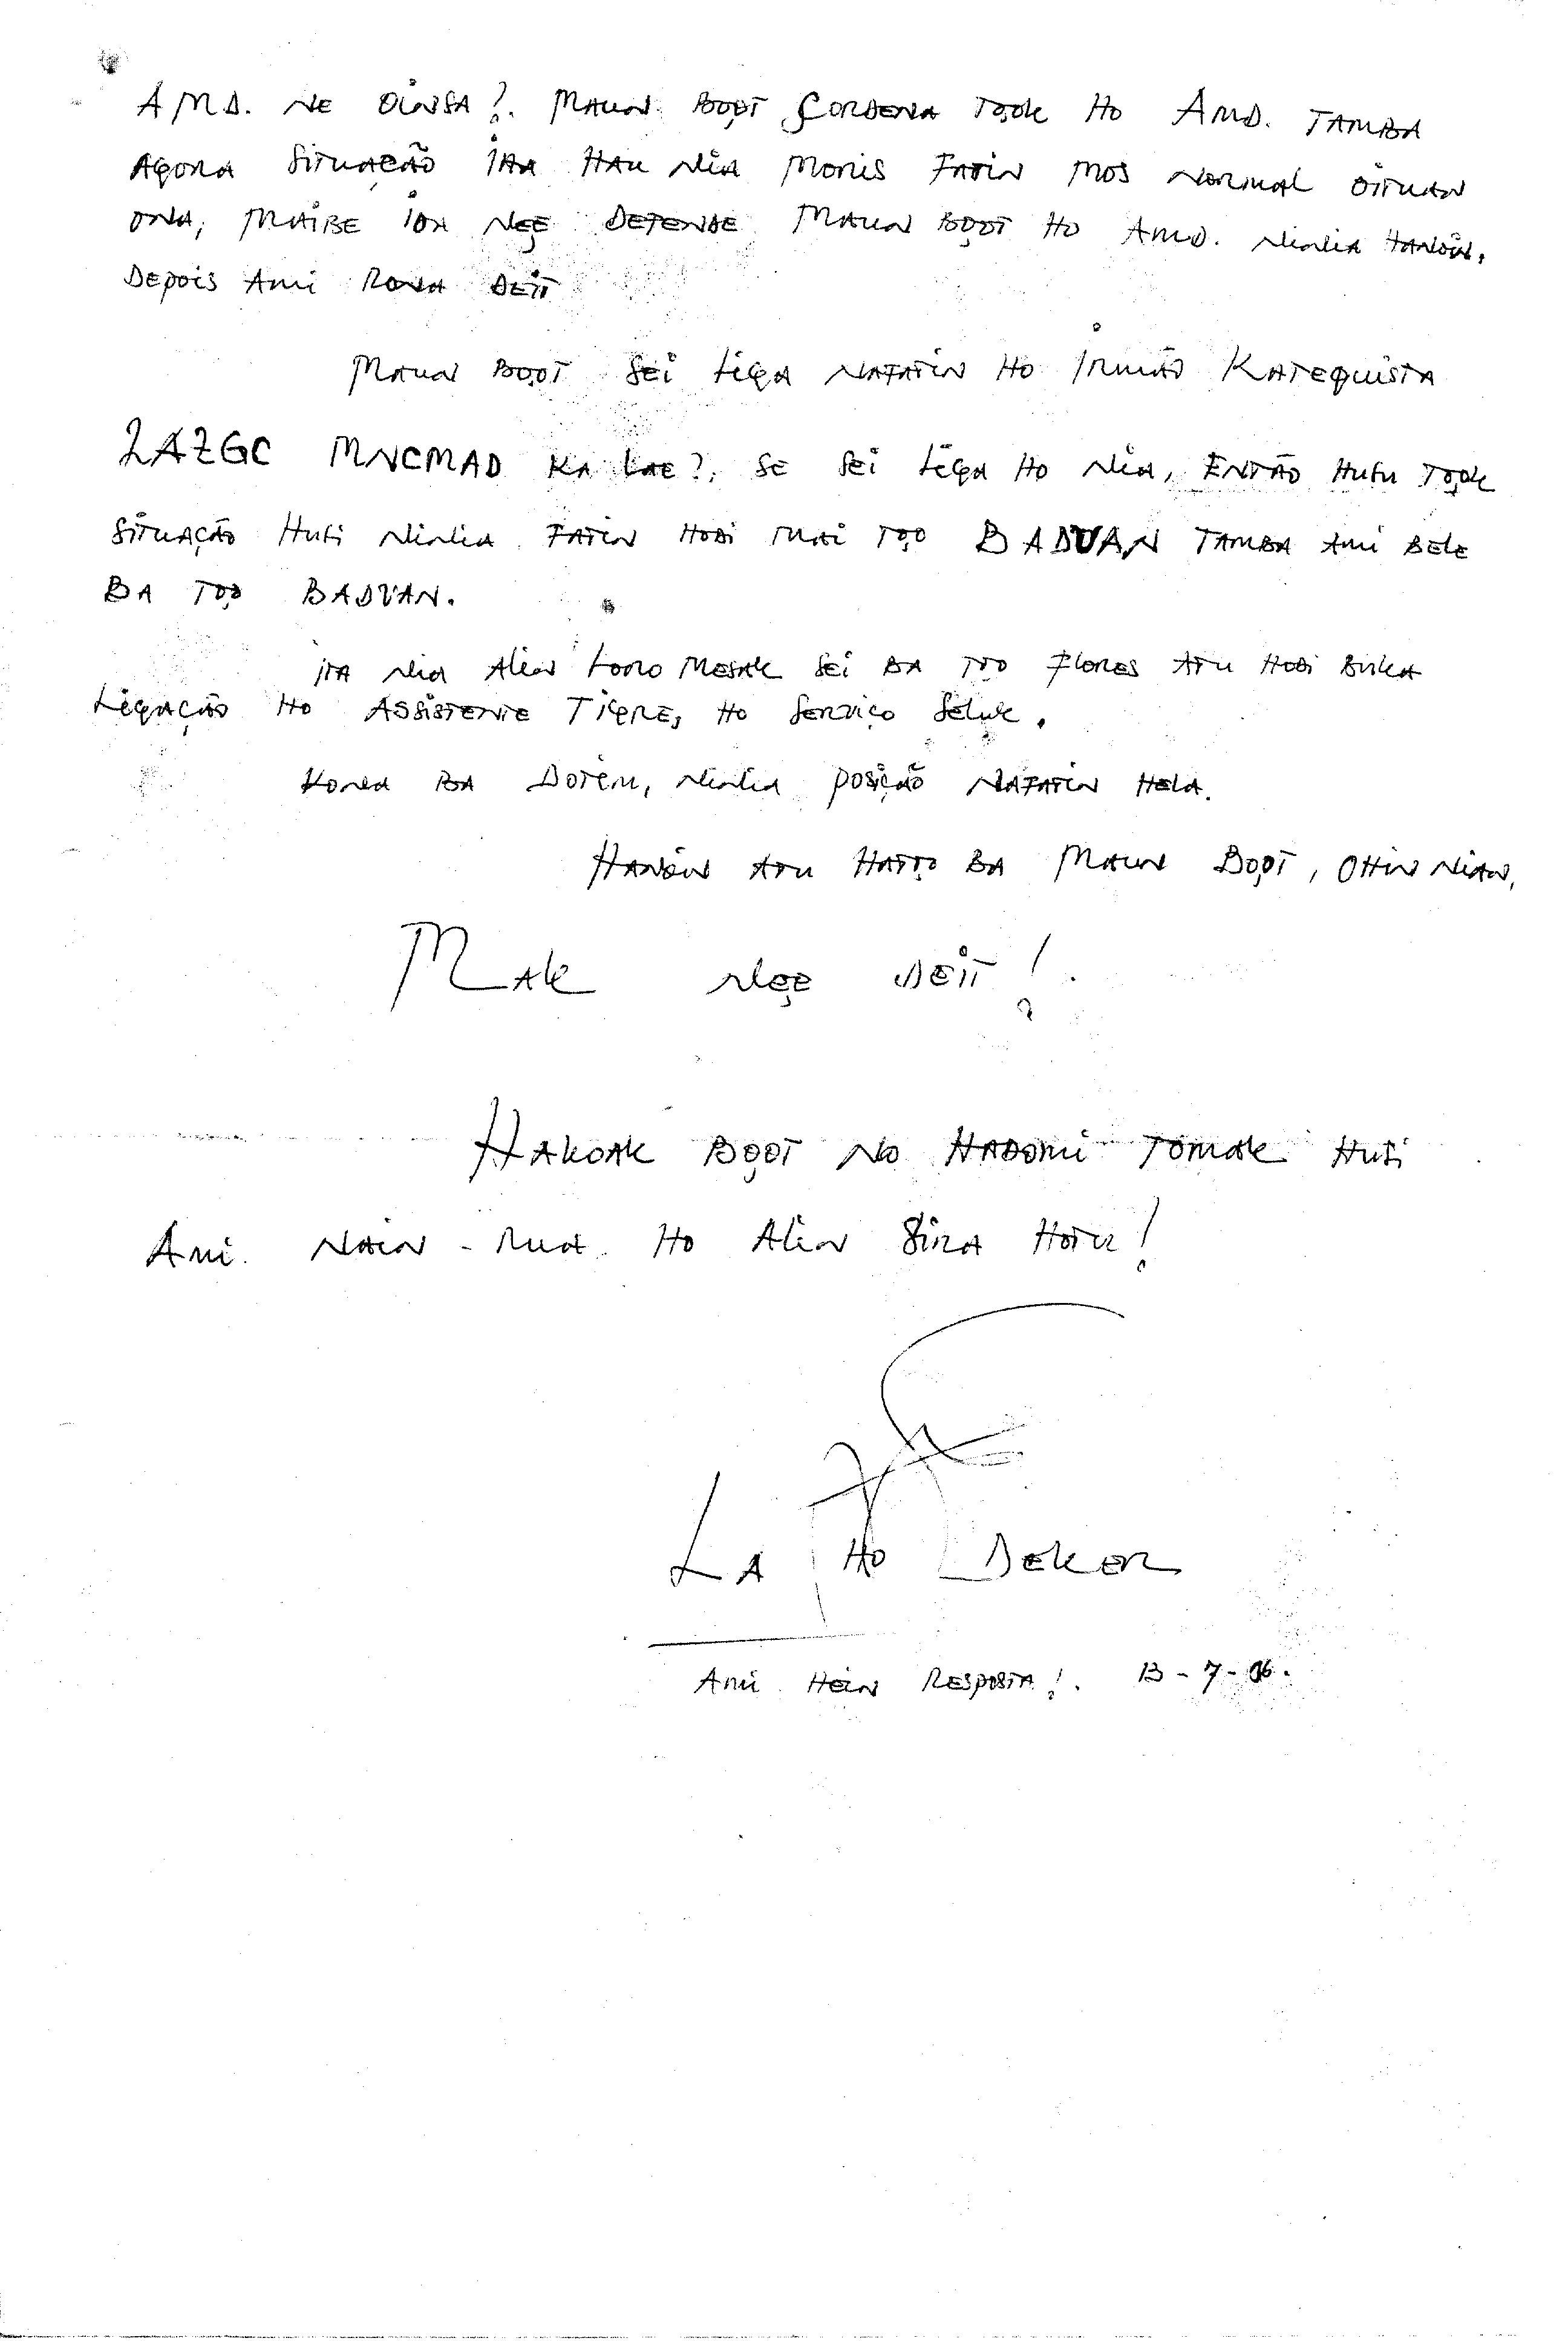 AMD. NE OINSA?. MAUN BOỌT ÇORDENA TOỌK HO AMD. TAMBA
AGORA SITUAÇÃO IHA HAU NIA MORIS FATIN MOS NORMAL OITUAN
ONA, MAIBE IDA NEE DEPENDE MAUN BOỌT HO AMD. NINIA HANOIN.
DEPOIS AMI RONA DEIT
MAUN BOỌT SEI LIGA NAFATIN HO IRMÃO KATEQUISTA
LAZGC MNCMAD KA LAE?, SE SEI LIGA HO NIA, ENTÃO HUSU TOỌK
SITUAÇÃO HUSI NINIA FATIN HODI MAI TOỌ BADVAN TAMBA AMI BELE
BA TOỌ BADVAN.
ITA NIA ALIN LORO MESAK SEI BA TOO FLORES ATU HODI BUKA
LIGAÇÃO HO ASSISTENTE TIGRE, HO SERVIÇO SELUK.
KONA BA DOTEM, NINIA POSIÇÃO NAFATIN HELA.
HANOIN ATU HATOỌ BA MAUN BOỌT, OHIN NIAN,
MAK NEE DEIT!.
HAKOAK BOỌT NO HADOMI TOMAK HUSI
AMI NAIN-RUA HO ALIN SIRA HOTU!
LA HO DEKER
AMI HEIN RESPOSTA!. 13-7-96.